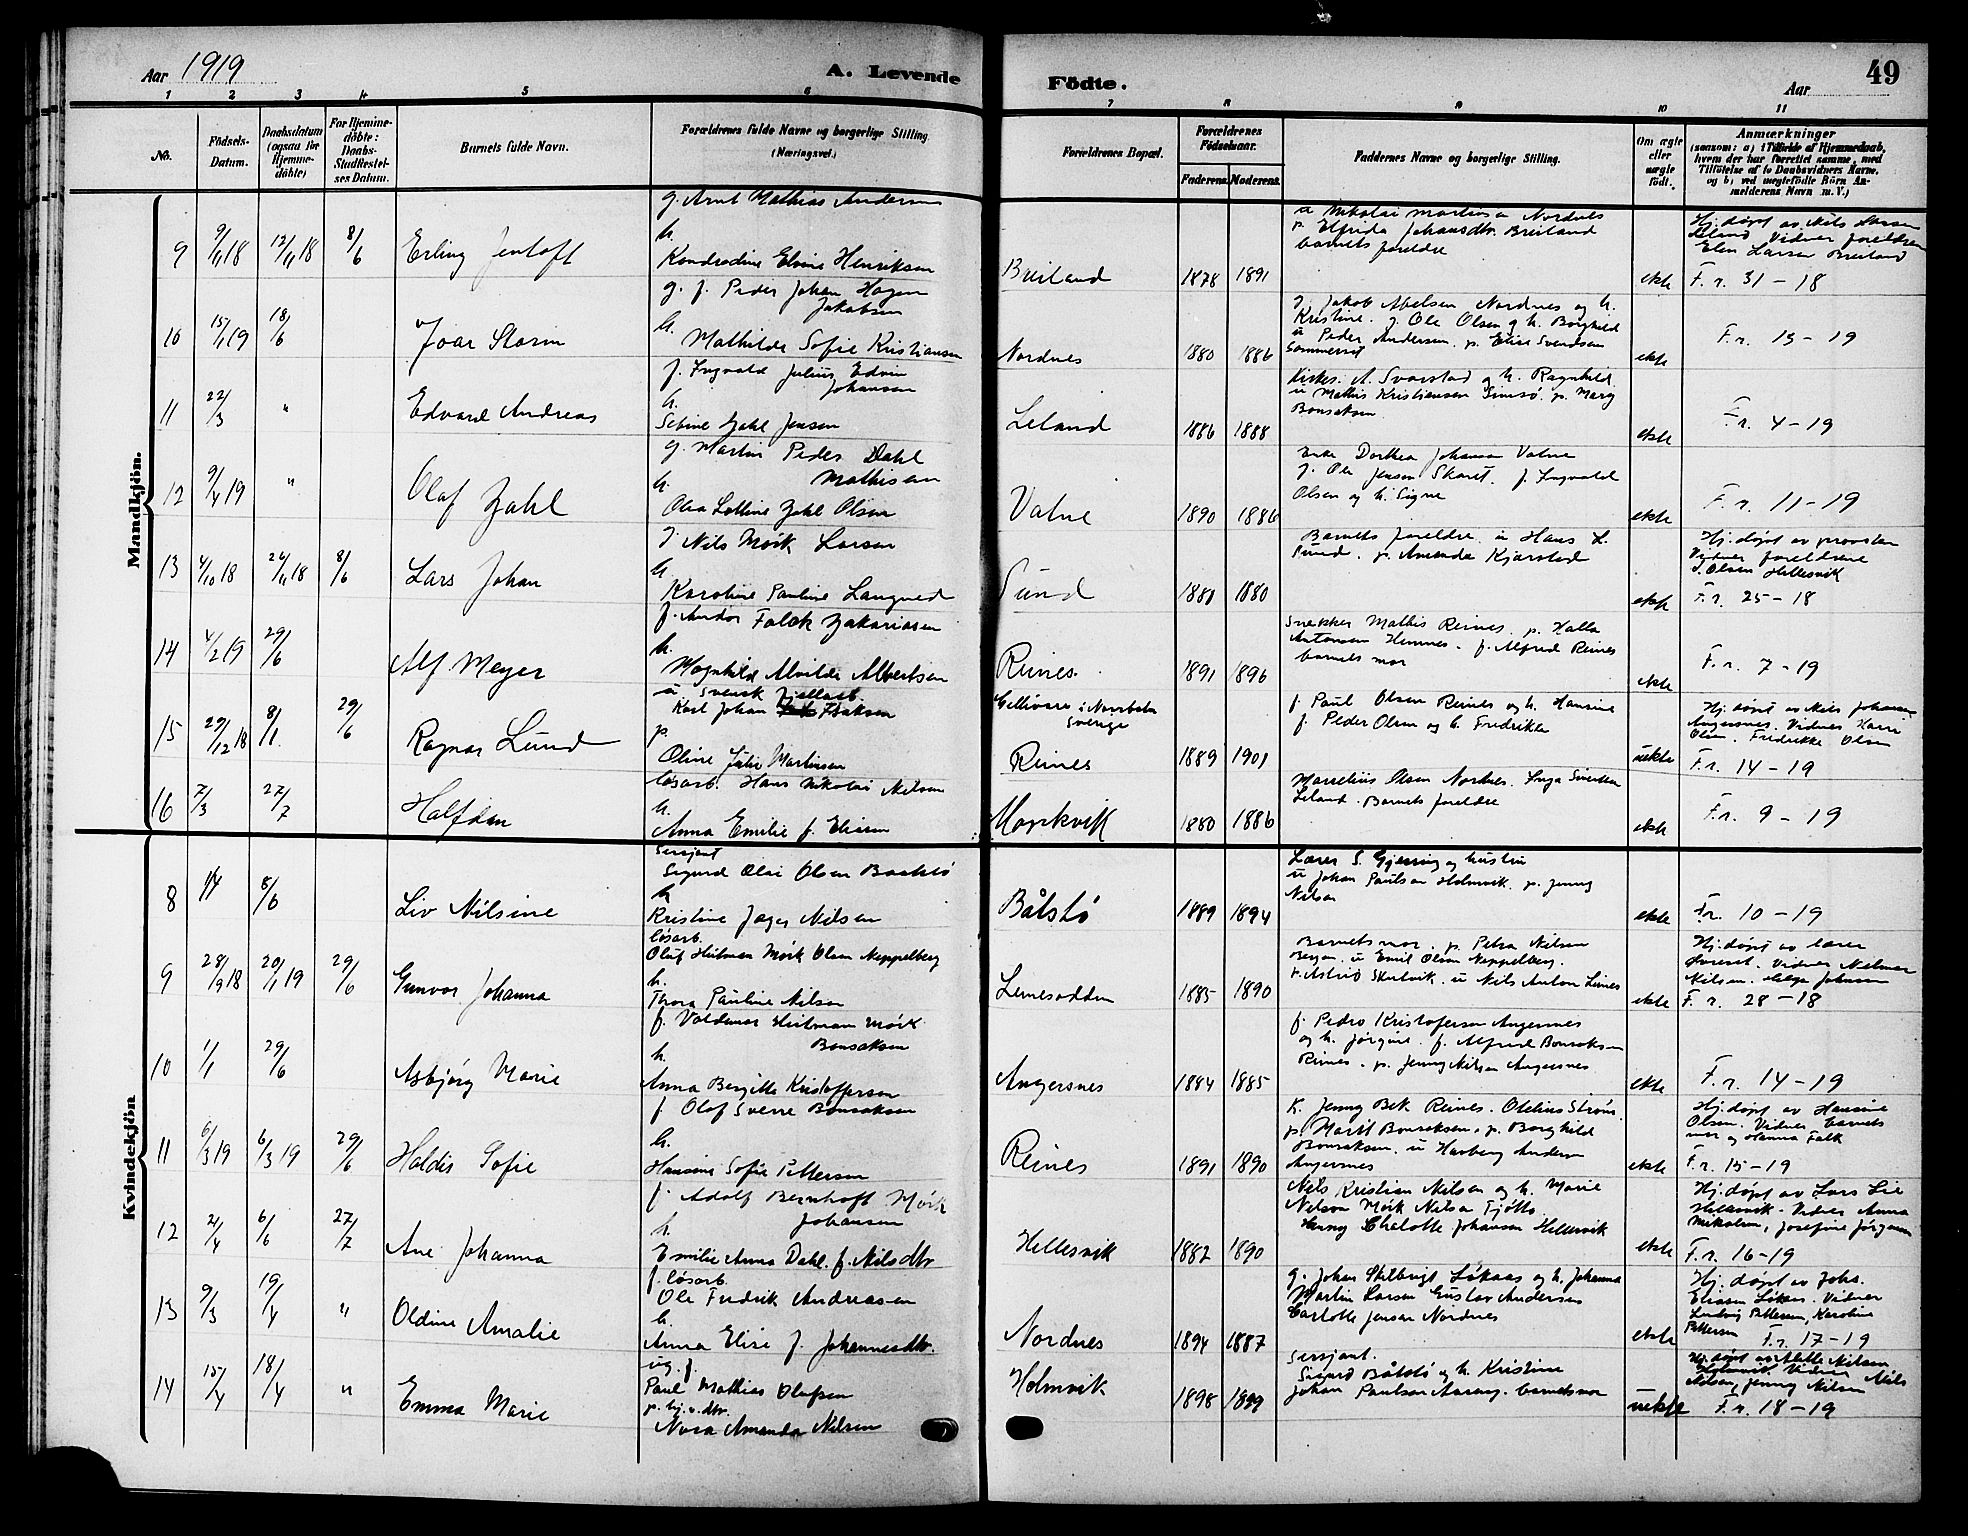 Aar 1919
A. Levende Födte.
49
Aar
1 2 3 4 5 6 7 8 9 10 11
No.
Födsels-Datum.
Daabsdatum (ogsaa for Hjemme-döbte)
For Hjemme-döbte: Daabs-Stadfæstel-ses Datum.
Barnets fulde Navn.
Forældrenes fulde Navne og borgerlige Stilling. (Næringsvei.)
Forældrenes Bopæl.
Forældrenes Födselsaar.
Faderens. Moderens.
Faddernes Navne og borgerlige Stilling.
Om ægte eller uægte födt.
Anmærkninger
(saasom: a) i Tilfælde af Hjemmedaab,
hvem der har forrettet samme, med
Tilföielse af to Daabsvidners Navne,
og b) ved uægtefödte Börn An-
melderens Navn m. V.)
Mandkjön.
9 9/11 18 12/11 18 8/6 Erling Jentoft
g. Arnt Mathias Andersen
h.
Kondradine Elvine Henriksen
Breiland 1878 1891
u Nikolai Martinsen Nordnes
p. Elfrida Johansdtr. Breiland
barnets foreldre
ekte
Hj. døpt av Nils Larsen
Leland Vidner foreldrene
Elen Larsen Breiland
F. r. 31 - 18
10 15/1 19 18/6 Joar Storm
g. f. Peder Johan Hagen
Jakobsen
h.
Mathilde Sofie Kristiansen
Nordnes 1880 1886
g. Jakob Abelsen Nordnes og h.
Kristine. g. Ole Olsen og h. Borghild
u Peder Andersen. p. Elise Svendsen
Sommerset
ekte
F. r. 13 - 19
11 22/3 " Edvard Andreas
f. Ingvald Julius Edvin
Johansen
h.
Sebine Zahl Jensen
Leland 1886 1888
Kirkes. A. Svarstad og h. Ragnhild
u Mathis Kristiansen Simsø. p. Mary
Bonsaksen.
ekte
F. r. 4 - 19
12 9/4 19 " Olaf Zahl
g. Martin Peder Dahl
Mathisen
h.
Olea Lottine Zahl Olsen
Vatne 1890 1886
Enke Dorthea Johansen Vatne
g. Ole Jensen Skaret. f. Ingvald
Olsen og h. Signe
ekte
F. r. 11 - 19
13 4/10 18 26/11 18 8/6 Lars Johan
g. Nils Mørk Larsen
h.
Karoline Pauline Langved
Sund 1880 1880
Barnets foreldre. u Hans L.
Sund. p. Amanda Kjærstad
ekte
Hj. døpt av provsten
Vidner foreldrene
I. Olsen Hellesvik
F. r. 25 - 18
14 4/2 19 29/6 Alf Meyer
f. Andor Falck Zakariasen
h.
Magnhild Alvilde Albertsen
Reines. 1891 1896
Snekker Mathis Reines. p. Halla
Antonsen Hemnes. f. Alfred Reines
barnets mor
ekte
F. r. 7 - 19
15 29/12 18 8/1 29/6 Ragnar Lund
u svensk fjellarb.
Karl Johan Isaksen
p.
Oline Julie Martinsen
Gellivare i Norrbotn
Sverige
Reines 1889 1901
f. Paul Olsen Reines og h. Hansine
f. Peder Olsen og h. Fredrikke
uekte
Hj. døpt av Nils Johansen
Angersnes. Vidner Harri
Olsen. Fredrikke Olsen
F. r. 14 - 19
16 7/3 27/7 Halfdan
løsarb. Hans Nikolai Nilsen
h.
Anna Emilie f. Eliasen
1880 1886
Marselius Olsen Nordnes. Inga Sivertsen
Leland. Barnets foreldre
ekte
F. r. 9 - 19
Kvindekjön
8 1/4 8/6 Liv Nilsine
Sersjant
Sigurd Olai Olsen Baatstø
h.
Kristine Jager Nilsen
Båtstø 1889 1894
Lærer S. Gjerring og hustru
u Johan Paulsen Holmvik. p. Jenny
Nilsen
ekte
F. r. 10 - 19
9 28/9 18 20/1 19 29/6 Gunvor Johanna
løsarb.
Oluf Hutman Mørk Olsen Neppelberg
h.
Thora Pauline Nilsen
Leinesodden 1885 1890
Barnets mor. p. Petra Nilsen
Bergan. u Emil Olsen Neppelberg.
p. Astrid Skutvik. u Nils Anton Leines
ekte
Hj. døpt av lærer
Nilsen. Helga Johansen
F. r. 28 - 18
10 1/1 29/6 Asbjørg Marie
f. Valdemar Hutman Mørk
Bonsaksen
h.
Anna Bergitte Kristoffersen
Angersnes 1884 1885
f. Pedro Kristofersen Angersnes
og h. Jørgine. f. Alfred Bonsaksen
Reines. p. Jenny Nilsen Angersnes
ekte
F. r. 14 - 19
11 6/3 19 6/3 19 29/6 Haldis Sofie
f. Olaf Sverre Bonsaksen
h.
Hansine Sofie Pettersen
Reines 1891 1890
K. Jenny Bek Reines. Otelius Strøm.
p. Marit Bonsaksen. p. Borghild
Bonsaksen. u Havberg Andersen
Angersnes
ekte
Hj. døpt av Hansine
Olsen. Vidner barnets
mor og Hanna Falk
F. r. 15 - 19
12 24/4 6/6 27/7 Ane Johanna
f. Adolf Bernhoft Mørk
Johansen
h.
Emilie Anna Dahl. f. Nilsdtr
Hellesvik 1882 1890
Nels Kristian Nilsen og h. Marie
Nelson Mørk Nilsen Tjøtta
Henny Chalotte Johansen Hellesvik
ekte
Hj. døpt av Lars Lie
Hellesvik. Vidner Anna
Mikalsen, Josefine Jörgensen
F. r. 16 - 19
13 9/3 19/4 " Oldine Amalie
f. løsarb.
Ole Fredrik Andreasen
h.
Anna Elise f. Johannesdtr.
Nordnes 1894 1887
g. Johan Skilbrigt Løkaas og h. Johanna
Martin Larsen Gustav Andersen
Carlotte Jensen Nordnes
ekte
Hj. døpt av Johs.
Eliasen Løkaas. Vidner
Ludvig Pettersen, Karoline
Pettersen F. r. 17 - 19
14 15/4 18/4 " Emma Marie
ug. f.
Paul Mathias Olafsen
p. hj. v. dtr.
Nora Amanda Nilsen
Holmvik 1898 1899
Sersjant.
Sigurd Båtstø og h. Kristine
Johan Paulsen Aarang. barnets mor
uekte
Hj. døpt av Mette Nilsen
Holmvik. Vidner Nils
Nilsen, Jenny Nilsen
F. r. 18 - 19